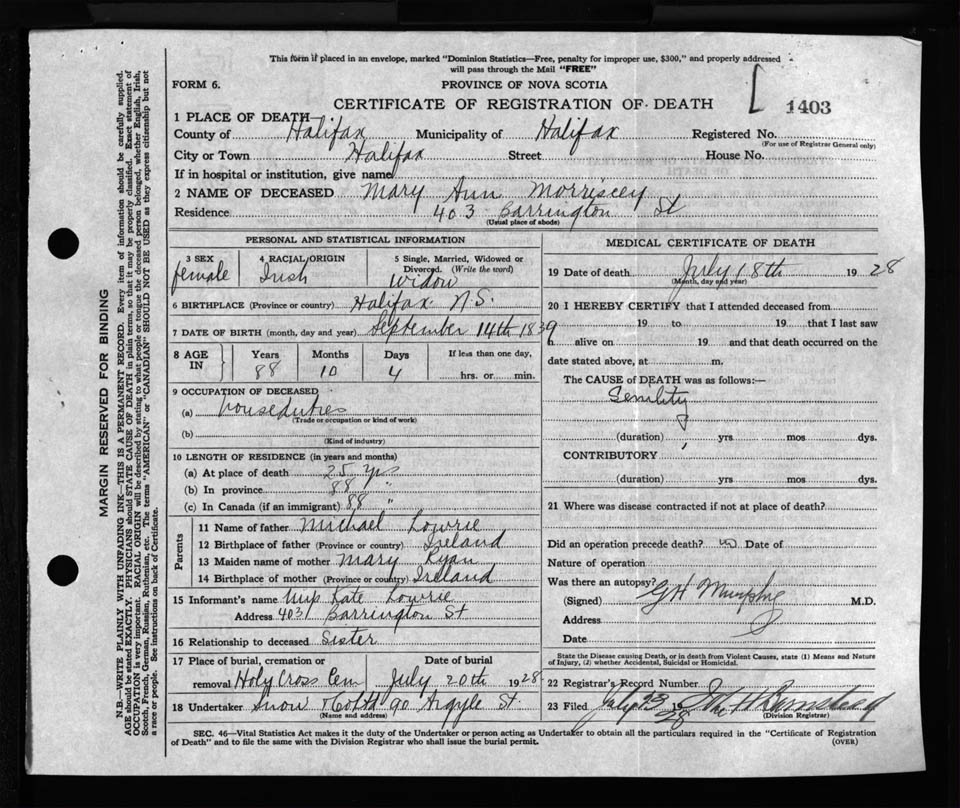 This form if placed in an envelope, marked "Dominion Statistics—Free, penalty for improper use, $300," and properly addressed
will pass through the Mail "FREE"
FORM 6.
PROVINCE OF NOVA SCOTIA
CERTIFICATE OF REGISTRATION OF DEATH
1403
1 PLACE OF DEATH
County of Halifax Municipality of Halifax Registered No.
(For use of Registrar General only)
City or Town Halifax Street House No.
If in hospital or institution, give name
2 NAME OF DECEASED Mary Ann Morriscey
Residence 403 Barrington St
(Usual place of abode)
PERSONAL AND STATISTICAL INFORMATION
3 SEX female
4 RACIAL ORIGIN Irish
5 Single, Married, Widowed or Divorced. (Write the word) Widow
6 BIRTHPLACE (Province or country) Halifax N.S.
7 DATE OF BIRTH (month, day and year) September 14th 1839
8 AGE IN Years 88 Months 10 Days 4 If less than one day, hrs. or min.
9 OCCUPATION OF DECEASED
(a) houseduties
(Trade or occupation or kind of work)
(b)
(Kind of industry)
10 LENGTH OF RESIDENCE (in years and months)
(a) At place of death 25 yrs
(b) In province 88 "
(c) In Canada (if an immigrant) 88 "
Parents
11 Name of father Michael Lowrie
12 Birthplace of father (Province or country) Ireland
13 Maiden name of mother Mary Ryan
14 Birthplace of mother (Province or country) Ireland
15 Informant's name Kate Lowrie
Address 403 Barrington St
16 Relationship to deceased Sister
17 Place of burial, cremation or removal Holy Cross Cem
Date of burial July 20th 1928
18 Undertaker Snow & Co Ltd 90 Argyle St.
(Name and address)
MEDICAL CERTIFICATE OF DEATH
19 Date of death July 18th 1928
(Month, day and year)
20 I HEREBY CERTIFY that I attended deceased from
19 to 19 that I last saw
h alive on 19 and that death occurred on the
date stated above, at m.
The CAUSE of DEATH was as follows:—
Senility
(duration) yrs mos dys.
CONTRIBUTORY
(duration) yrs mos dys.
21 Where was disease contracted if not at place of death?
Did an operation precede death? no Date of
Nature of operation
Was there an autopsy?
(Signed) G H Murphy M.D.
Address
Date
State the Disease causing Death, or in death from Violent Causes, state (1) Means and
Nature of Injury, (2) whether Accidental, Suicidal or Homicidal.
22 Registrar's Record Number
23 Filed July 23 1928 John H Barnstead
(Division Registrar)
SEC. 46—Vital Statistics Act makes it the duty of the Undertaker or person acting as Undertaker to obtain all the particulars required in the "Certificate of Registration
of Death" and to file the same with the Division Registrar who shall issue the burial permit.
(OVER)
MARGIN RESERVED FOR BINDING
N.B.—WRITE PLAINLY WITH UNFADING INK—THIS IS A PERMANENT RECORD. Every item of information should be carefully supplied.
AGE should be stated EXACTLY. PHYSICIANS should STATE CAUSE OF DEATH in plain terms, so that it may be properly classified. Exact statement of
OCCUPATION is very important. RACIAL ORIGIN will be described by stating to what people or tongue the deceased person belonged, whether English, Irish,
Scotch, French, German, Russian, Ruthenian, etc. The terms "AMERICAN" or "CANADIAN" SHOULD NOT BE USED as they express citizenship but not
a race or people. See instructions on back of Certificate.